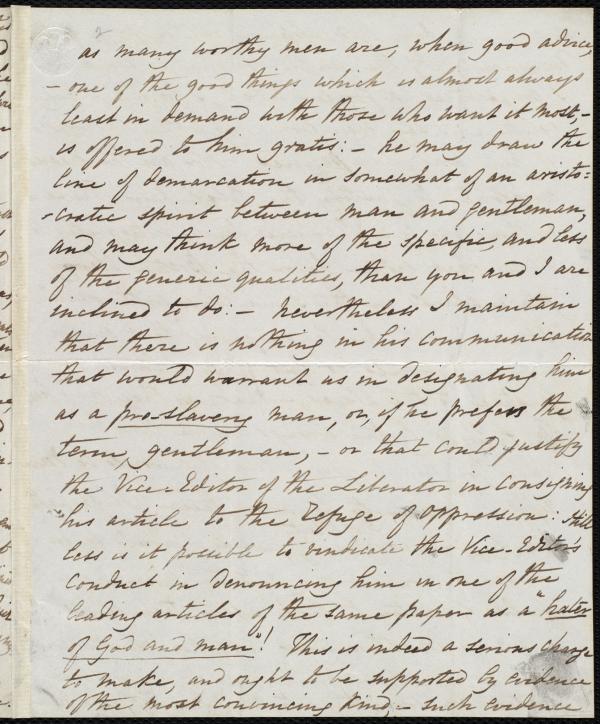 2
as many worthy men are, when good advice,
- one of the good things which is almost always
least in demand with those who want it most, -
is offered to him gratis: - he may draw the
line of demarcation in somewhat of an aristo=
-cratic spirit between man and gentleman,
and may think more of the specific, and less
of the generic qualities, than you and I are
inclined to do: - nevertheless I maintain
that there is nothing in his communication
that would warrant us in designating him
as a pro-slavery man, or, if he prefers the
term, gentleman, - or that could justify
the Vice-Editor of the Liberator in consigning
his article to the Refuge of Oppression: Still
less is it possible to vindicate the Vice-Editor's
conduct in denouncing him in one of the
leading articles of the same paper as a "hater
of God and man"! This is indeed a serious charge
to make, and ought to be supported by evidence
of the most convincing kind, - such evidence